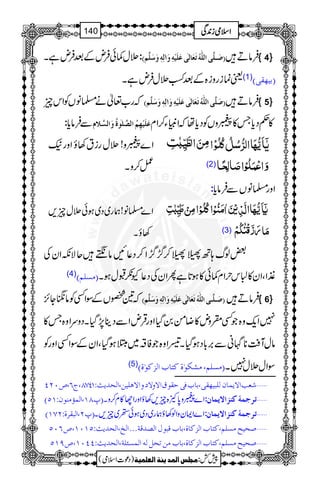 140
اسلامی زندگی
{4} فرماتے ہیں (صَلَّی اللّٰہُ تَعَالٰی عَلَیْہِ وَاٰلِہٖ وَسَلَّم): حلال کمائی فرض کے بعد فرض ہے۔
(بیہقی)(1) یعنی نماز روزہ کے بعد کسبِ حلال فرض ہے۔
{5} فرماتے ہیں (صَلَّی اللّٰہُ تَعَالٰی عَلَیْہِ وَاٰلِہٖ وَسَلَّم) کہ رب تعالٰی نے مسلمانوں کو اس چیز
کا حکم دیا جس کا پیغمبروں کو دیا تھا کہ انبیاء کرام عَلَیْہِمُ الصَّلٰوۃُ وَالسَّلام سے فرمایا:
یٰۤاَیُّهَا الرُّسُلُ كُلُوْا مِنَ الطَّیِّبٰتِ وَاعْمَلُوْا صَالِحًاؕ (2)
اے پیغمبرو! حلال رزق کھاؤ اور نیک عمل کرو۔
اور مسلمانوں سے فرمایا:
یٰۤاَیُّهَا الَّذِیْنَ اٰمَنُوْا كُلُوْا مِنْ طَیِّبٰتِ مَا رَزَقْنٰكُمْ (3)
اے مسلمانو! ہماری دی ہوئی حلال چیزیں کھاؤ۔
بعض لوگ ہاتھ پھیلا پھیلا کر گڑ گڑا کر دعائیں مانگتے ہیں حالانکہ ان کی
غذا، ان کا لباس حرام کمائی کا ہوتا ہے پھر ان کی دعا کیونکر قبول ہو۔ (مسلم)(4)
{6} فرماتے ہیں (صَلَّی اللّٰہُ تَعَالٰی عَلَیْہِ وَاٰلِہٖ وَسَلَّم) کہ تین شخصوں کے سوا کسی کو مانگنا جائز
نہیں ایک وہ جو کسی مقروض کا ضامن بن گیا اور قرض اسے دینا پڑ گیا۔ دوسرا وہ جس کا
مال آفت ناگہانی سے برباد ہو گیا۔ تیسرے وہ جو فاقہ میں مبتلا ہو گیا، ان کے سوا کسی اور کو
سوال حلال نہیں۔ (مسلم، مشکوۃ کتاب الزکوۃ)(5)
شعب الایمان للبیھقی،باب فی حقوق الاولاد والاھلین،الحدیث:۸۷۴۱،ج۶،ص۴۲۰
ترجمۂ کنز الایمان:اے پیغمبرو پاکیزہ چیزیں کھاؤ اور اچھا کام کرو۔(پ۱۸،المؤمنون:۵۱)
ترجمۂ کنز الایمان:اے ایمان والو کھاؤ ہماری دی ہوئی ستھری چیزیں۔(پ۲،البقرۃ:۱۷۲)
صحیح مسلم،کتاب الزکاۃ،باب قبول الصدقۃ...الخ،الحدیث:۱۰۱۵،ص۵۰۶
صحیح مسلم،کتاب الزکاۃ،باب من تحل لہ المسئلۃ،الحدیث:۱۰۴۴،ص۵۱۹
پیش کش: مجلس المدینۃ العلمیۃ (دعوتِ اسلامی)